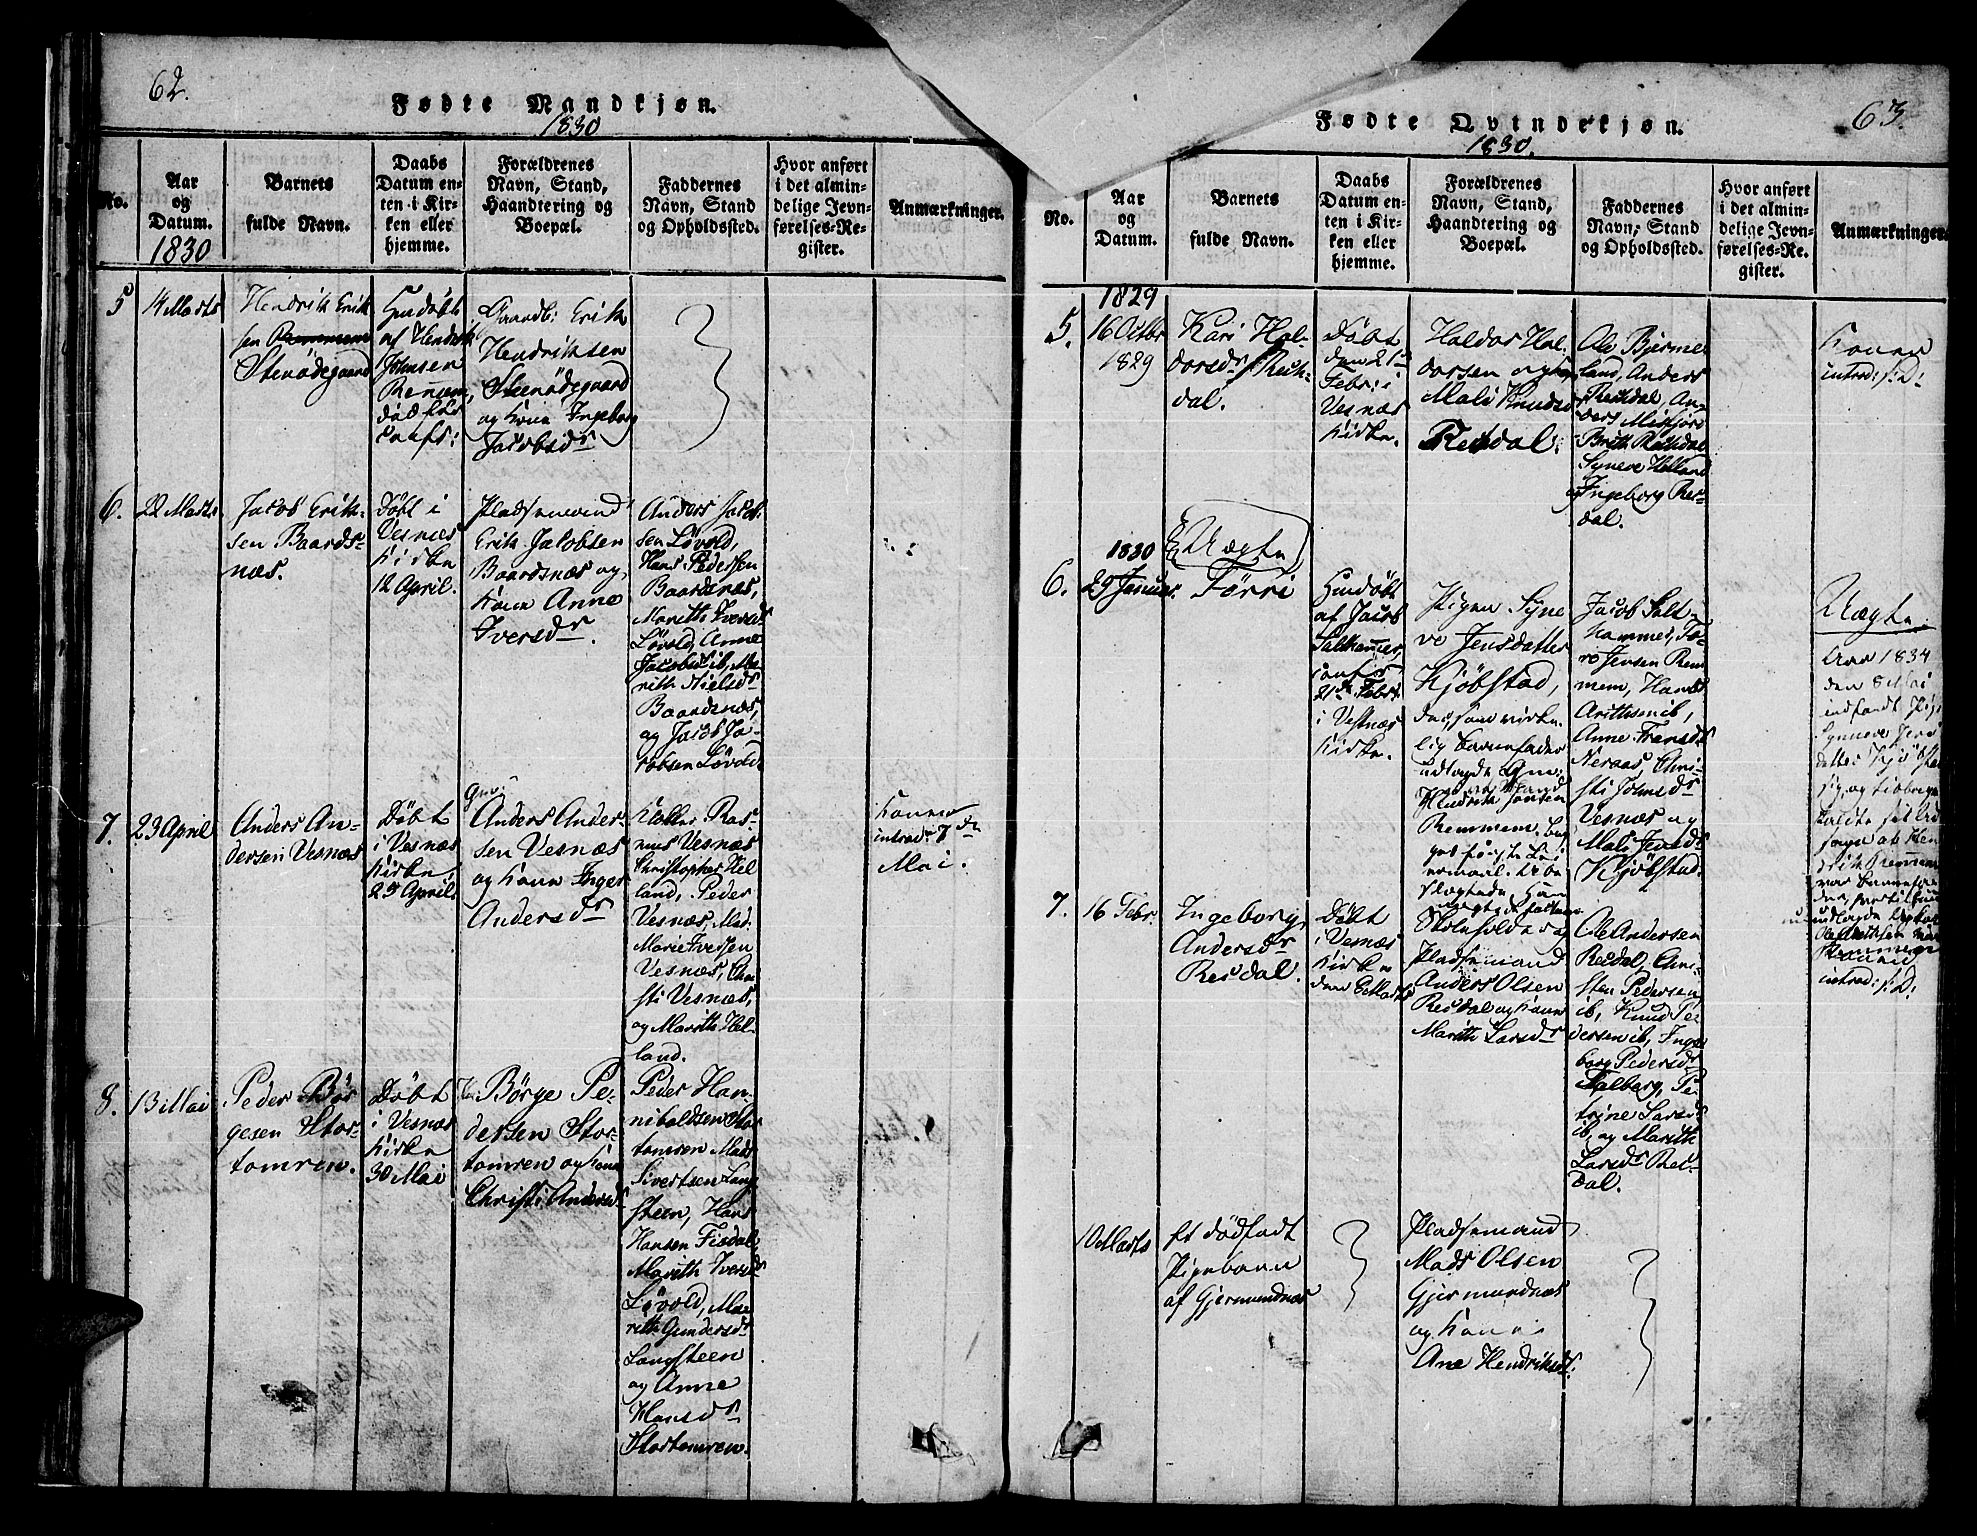 62.
Fødte Mandkjøn.
1830
No.
Aar
og
Datum.
1830
Barnets
fulde Navn.
Daabs
Datum en-
ten i Kir-
ken eller
hjemme.
Forældrenes
Navn, Stand,
Haandtering og
Boepæl.
Faddernes
Navn, Stand
og Opholdssted.
Hvor anført
i det almin-
delige Jevn-
førelses-Re-
gister.
Anmærkninger.
5
14 Marts
Hendrik Erik
sen Remmem
Stenødegaard
Hjmdøbt
af Hendrik
Johnsen
Remem,
død før
Gaardb: Erik
Hendriksen
Steenødegaard
og Kone Ingeborg
Jacobsdr
6.
22 Marts
Jacob Erik-
sen Baards-
næs.
Døbt i
Vesnæs
Kirke
12 April.
Pladsemand
Erik Jacobsen
Baardsnæs og
Kone Anne
Iversdr.
Anders Jacob
sen Løvold,
Hans Pedersen
Baardsnæs,
Marith Iversd
Løvold, Anne
Jacobsd ib, Ma-
rith Nielsdr
Baardsnæs,
og Jacob Ja-
cobsen Løvold.
7.
23 April
Anders An-
dersen Vesnæs
Døbt
i Vesnæs
Kirke
25 April
Anders Ander-
sen Vesnæs
og Kone Inger
Andersdr
Klokker Ras-
mus Vesnæs
Christopher Hel
land, Peder
Vesnæs, Mad:
Marie Iversen
Vesnæs, Chri
sti Vesnæs,
og Marith Hel-
land.
Konen
introd: 7de
Mai.
8.
13 Mai
Peder Bør
gesen Stor-
tomren.
Døbt
i Vesnæs
Kirke
30 Mai
Børge Pe-
dersen Stor-
tomren og Kone
Christi Andersd
Peder Han-
nibaldsen Stor
tomren Mads
Sivertsen Lang
steen, Hans
Hansen Fisdal
Marith Iversd
Løvold, Ma-
rith Gundersdr
Langsteen
og Anne
Hansdr
Stortomren.
63.
Fødte Qvindekjøn.
1830.
No.
Aar
og
Datum.
Barnets
fulde Navn.
Daabs
Datum en-
ten i Kir-
ken eller
hjemme.
Forældrenes
Navn, Stand,
Haandtering og
Boepæl.
Faddernes
Navn, Stand
og Opholdssted.
Hvor anført
i det almin-
delige Jevn-
førelses-Re-
gister.
Anmærkninger.
1829
5.
16 Octbr
1829
Kari Hal-
dorsdr Rek-
dal.
Døbt
den 21de
Febr: i
Vesnæs
Kirke.
Haldor Hal-
dorsen og
Mali Knudsd
Rekdal.
Ole Bjerme
land, Anders
Rekdal, An-
ders Misfjord
Brith Rekdal
Syneve Helland
og Ingeborg Rek-
dal.
Konen
introd: s: D:
1830
Uægte
6.
29 Januar.
Førri
Hjmdøbt
af Jacob
Salthamer
21de Febr.
i Vestnæs
Kirke.
Pigen Syne
ve Jensdatter
Kjøbstad,
lig Barnefader
udlagde
Hendrik Jonsen
Remmem
Jacob Salt-
hammer, To-
re Jensen Rem
mem, Hans
Arithsen ib,
Anne Fransdr
Neraas, Chri-
sti Johnsdr
Vesnæs og
Mali Jensdr
Kjøbstad.
Uægte.
Aar 1834
den 8 Mai
indfandt Pig:
Synneve Jens
datter Kjøbstad
sig, og
kaldte sit Ud
sagn at Hen
drik Remmem
var Barnefa
der,
udlagde
7.
16 Febr.
Ingeborg
Andersdr
Rekdal.
Døbt
i Vesnæs
Kirke
den 8 Marts
Skoleholder og
Pladsemand
Anders Olsen
Rekdal og Kone
Marith Larsdr
Ole Andersen
Rekdal, Chri-
sten Pedersen
ib, Knud Pe-
dersen ib, Inge
borg Pedersdr
Salberg, Pe-
trine Larsdr
ib, og Marith
Larsdr Rek-
dal.
introd: s: D:
10 Marts
Et dødfødt
Pigebarn
af Gjermundnæs
Pladsemand
Mads Olsen
Gjermundnæs
og Kone
Ane Hendriksdr.